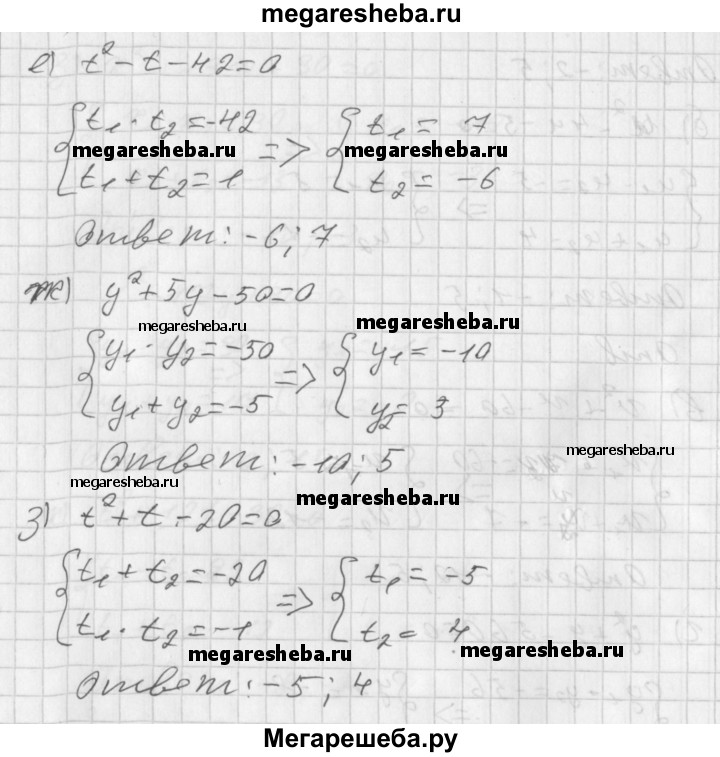 megaresheba.ru
е) t² - t - 42 = 0
{ t₁ · t₂ = -42 => { t₁ = 7
megaresheba.ru megaresheba.ru
t₁ + t₂ = 1 t₂ = -6
Ответ: -6; 7
ж) y² + 5y - 50 = 0
megaresheba.ru megaresheba.ru
{ y₁ · y₂ = -50 => { y₁ = -10
y₁ + y₂ = -5 y₂ = 3
Ответ: -10; 5
megaresheba.ru
megaresheba.ru megaresheba.ru
з) t² + t - 20 = 0
{ t₁ + t₂ = -20 => { t₁ = -5
t₁ · t₂ = -1 t₂ = 4
megaresheba.ru megaresheba.ru
Ответ: -5; 4
megaresheba.ru megaresheba.ru
Мегарешеба.ру